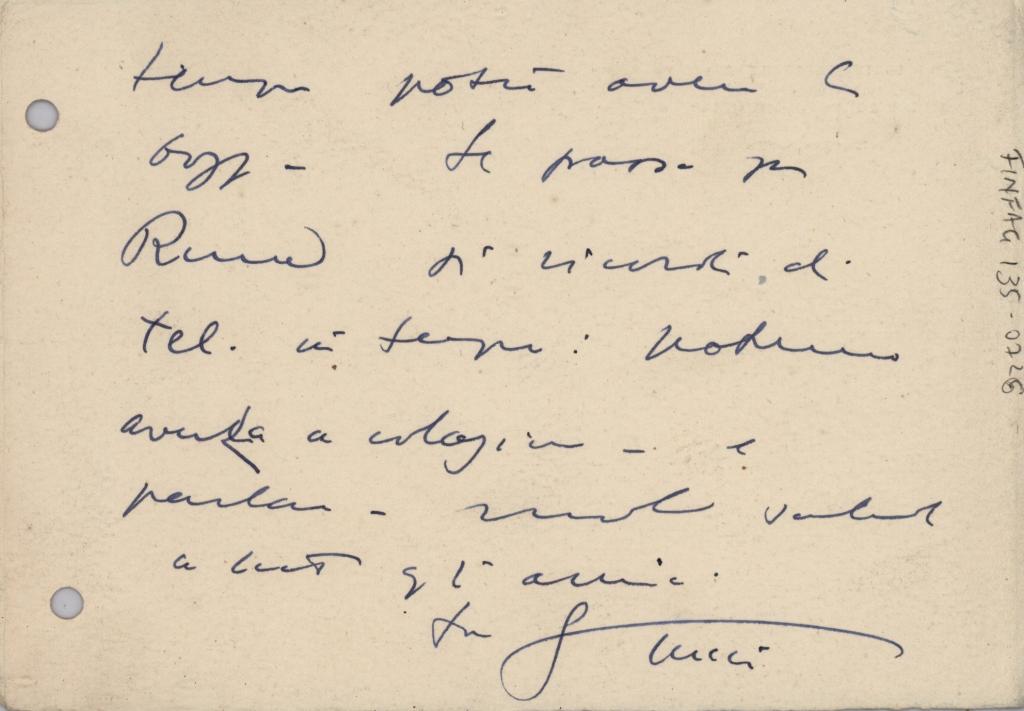 tempo potrò avere le
bozze – Se passa per
Roma si ricordi di
tel. in tempo: potremo
averla a colazione – e
parlare – molti saluti
a tutti gli amici.
Suo
FINFAG 135-0726